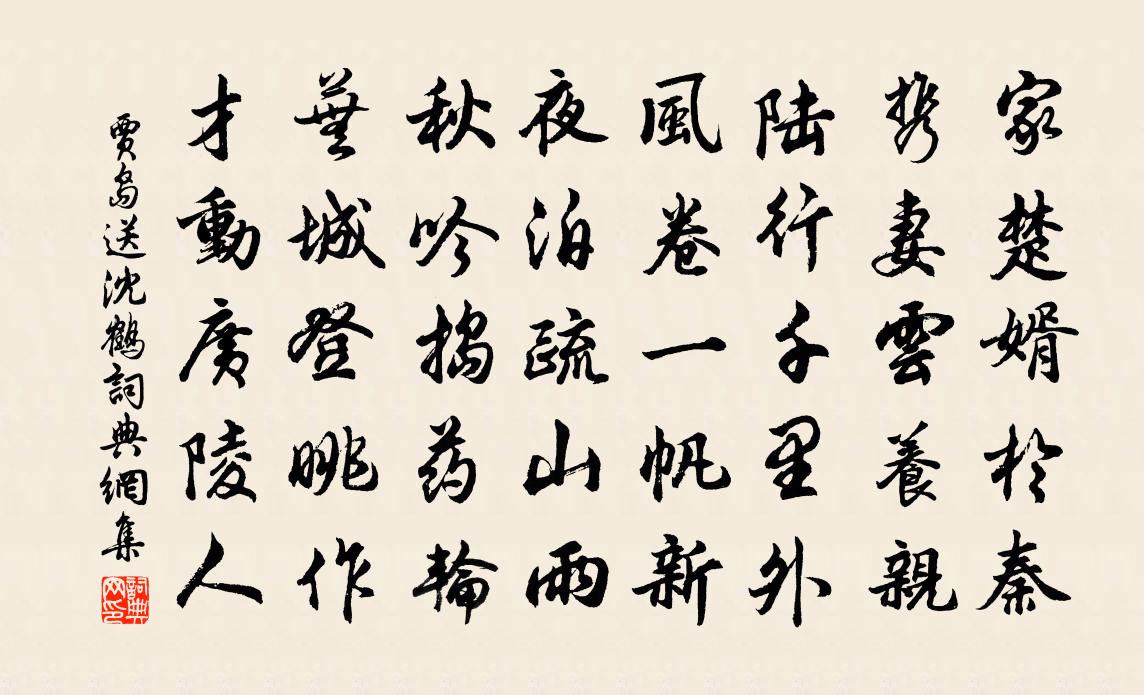 家楚婿於秦
携妻雲養親
陆行千里外
風卷一帆新
夜泊疏山雨
秋吟搗药輪
蕪城登眺作
才動廣陵人
賈島送沈鶴詞典網集
詞典网印